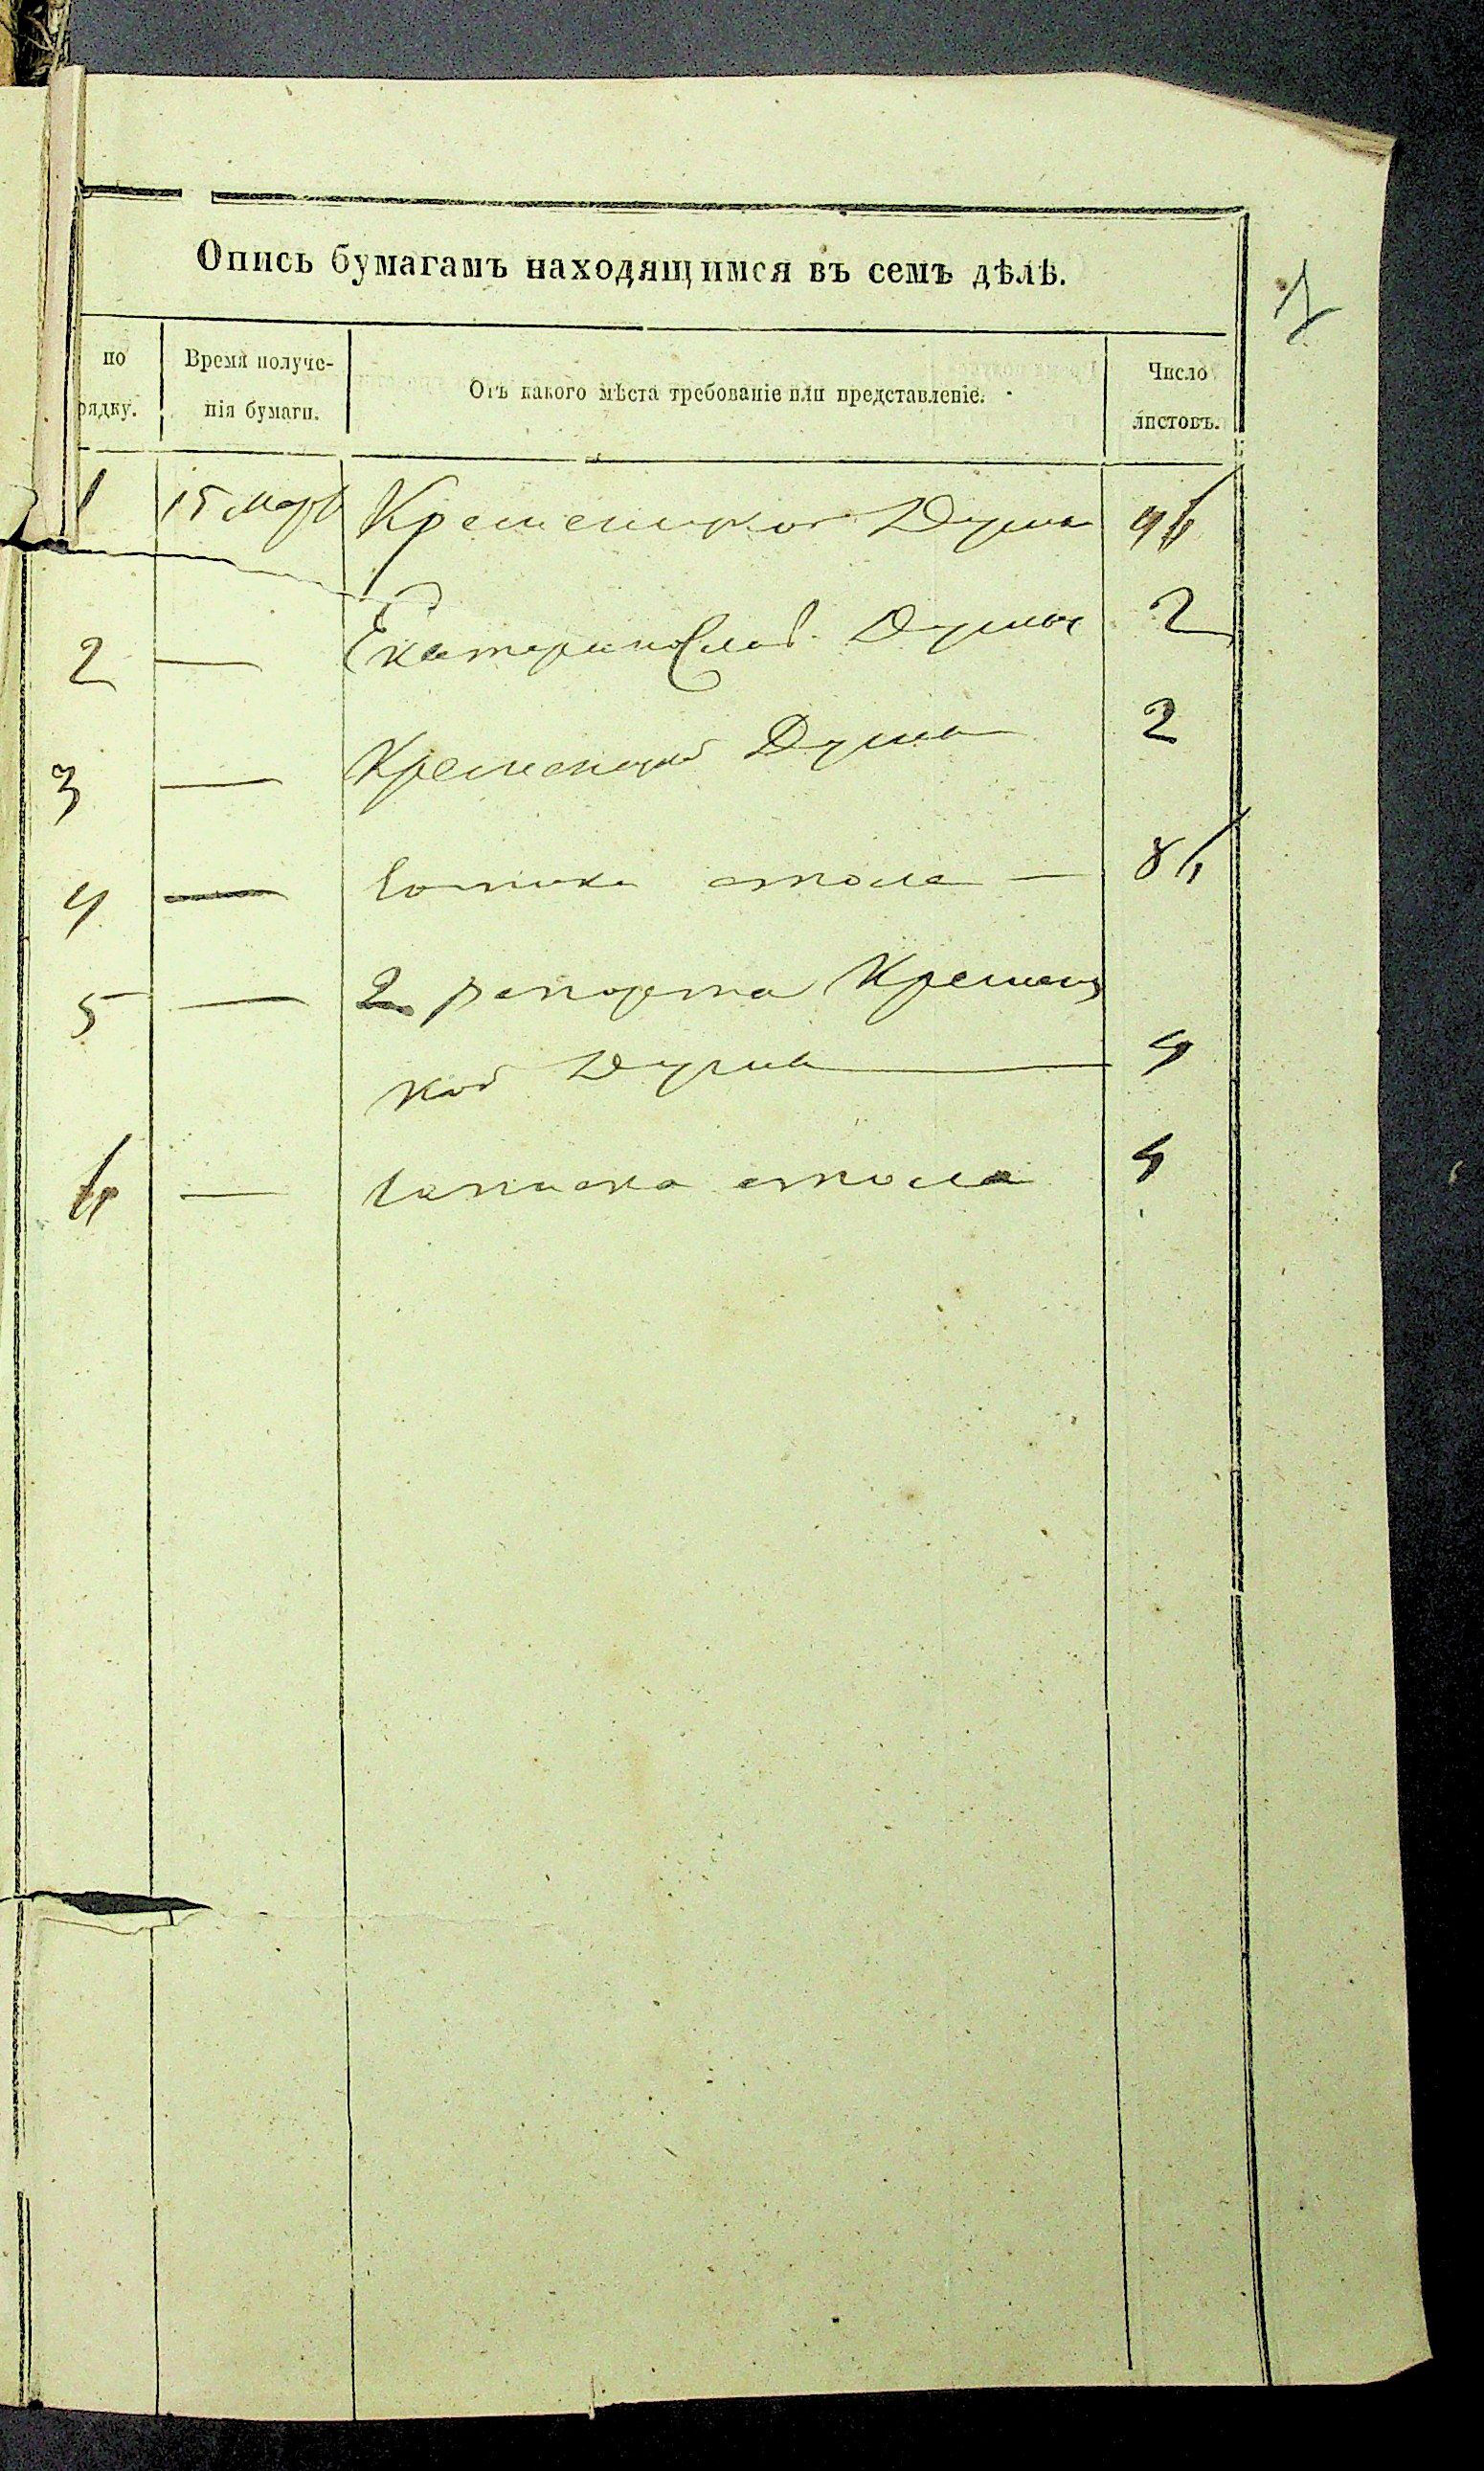 1
Опись бумагамъ находящимся въ семъ дѣлѣ.
по
рядку.
Время получе-
нія бумаги.
Отъ какого мѣста требованіе или представленіе.
Число
листовъ.
1 15 Март Кременчукой Думы 46
2 — Екатеринослав. Думы 2
3 — Кременчукой Думы 2
4 — стола — 86
5 — 2 рапорта Кременчу
кой Думы — 4
6 — стола 4